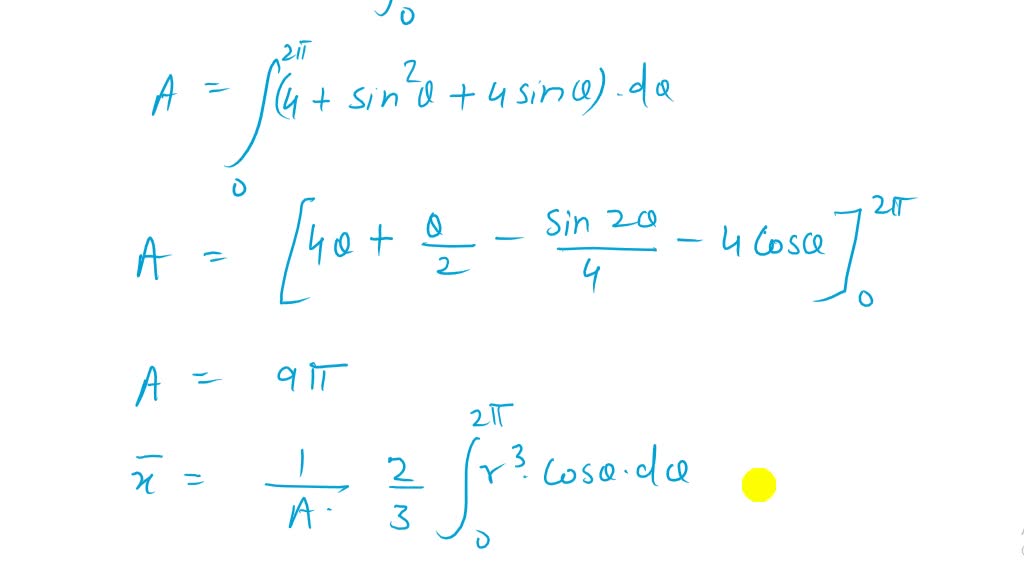 ∫₀
A = ∫₀^2π (4 + sin²θ + 4 sinθ).dθ
A = [4θ + θ/2 − sin 2θ/4 − 4 cosθ]₀^2π
A = 9π
x̄ = 1/A. 2/3 ∫₀^2π r³. cosθ.dθ